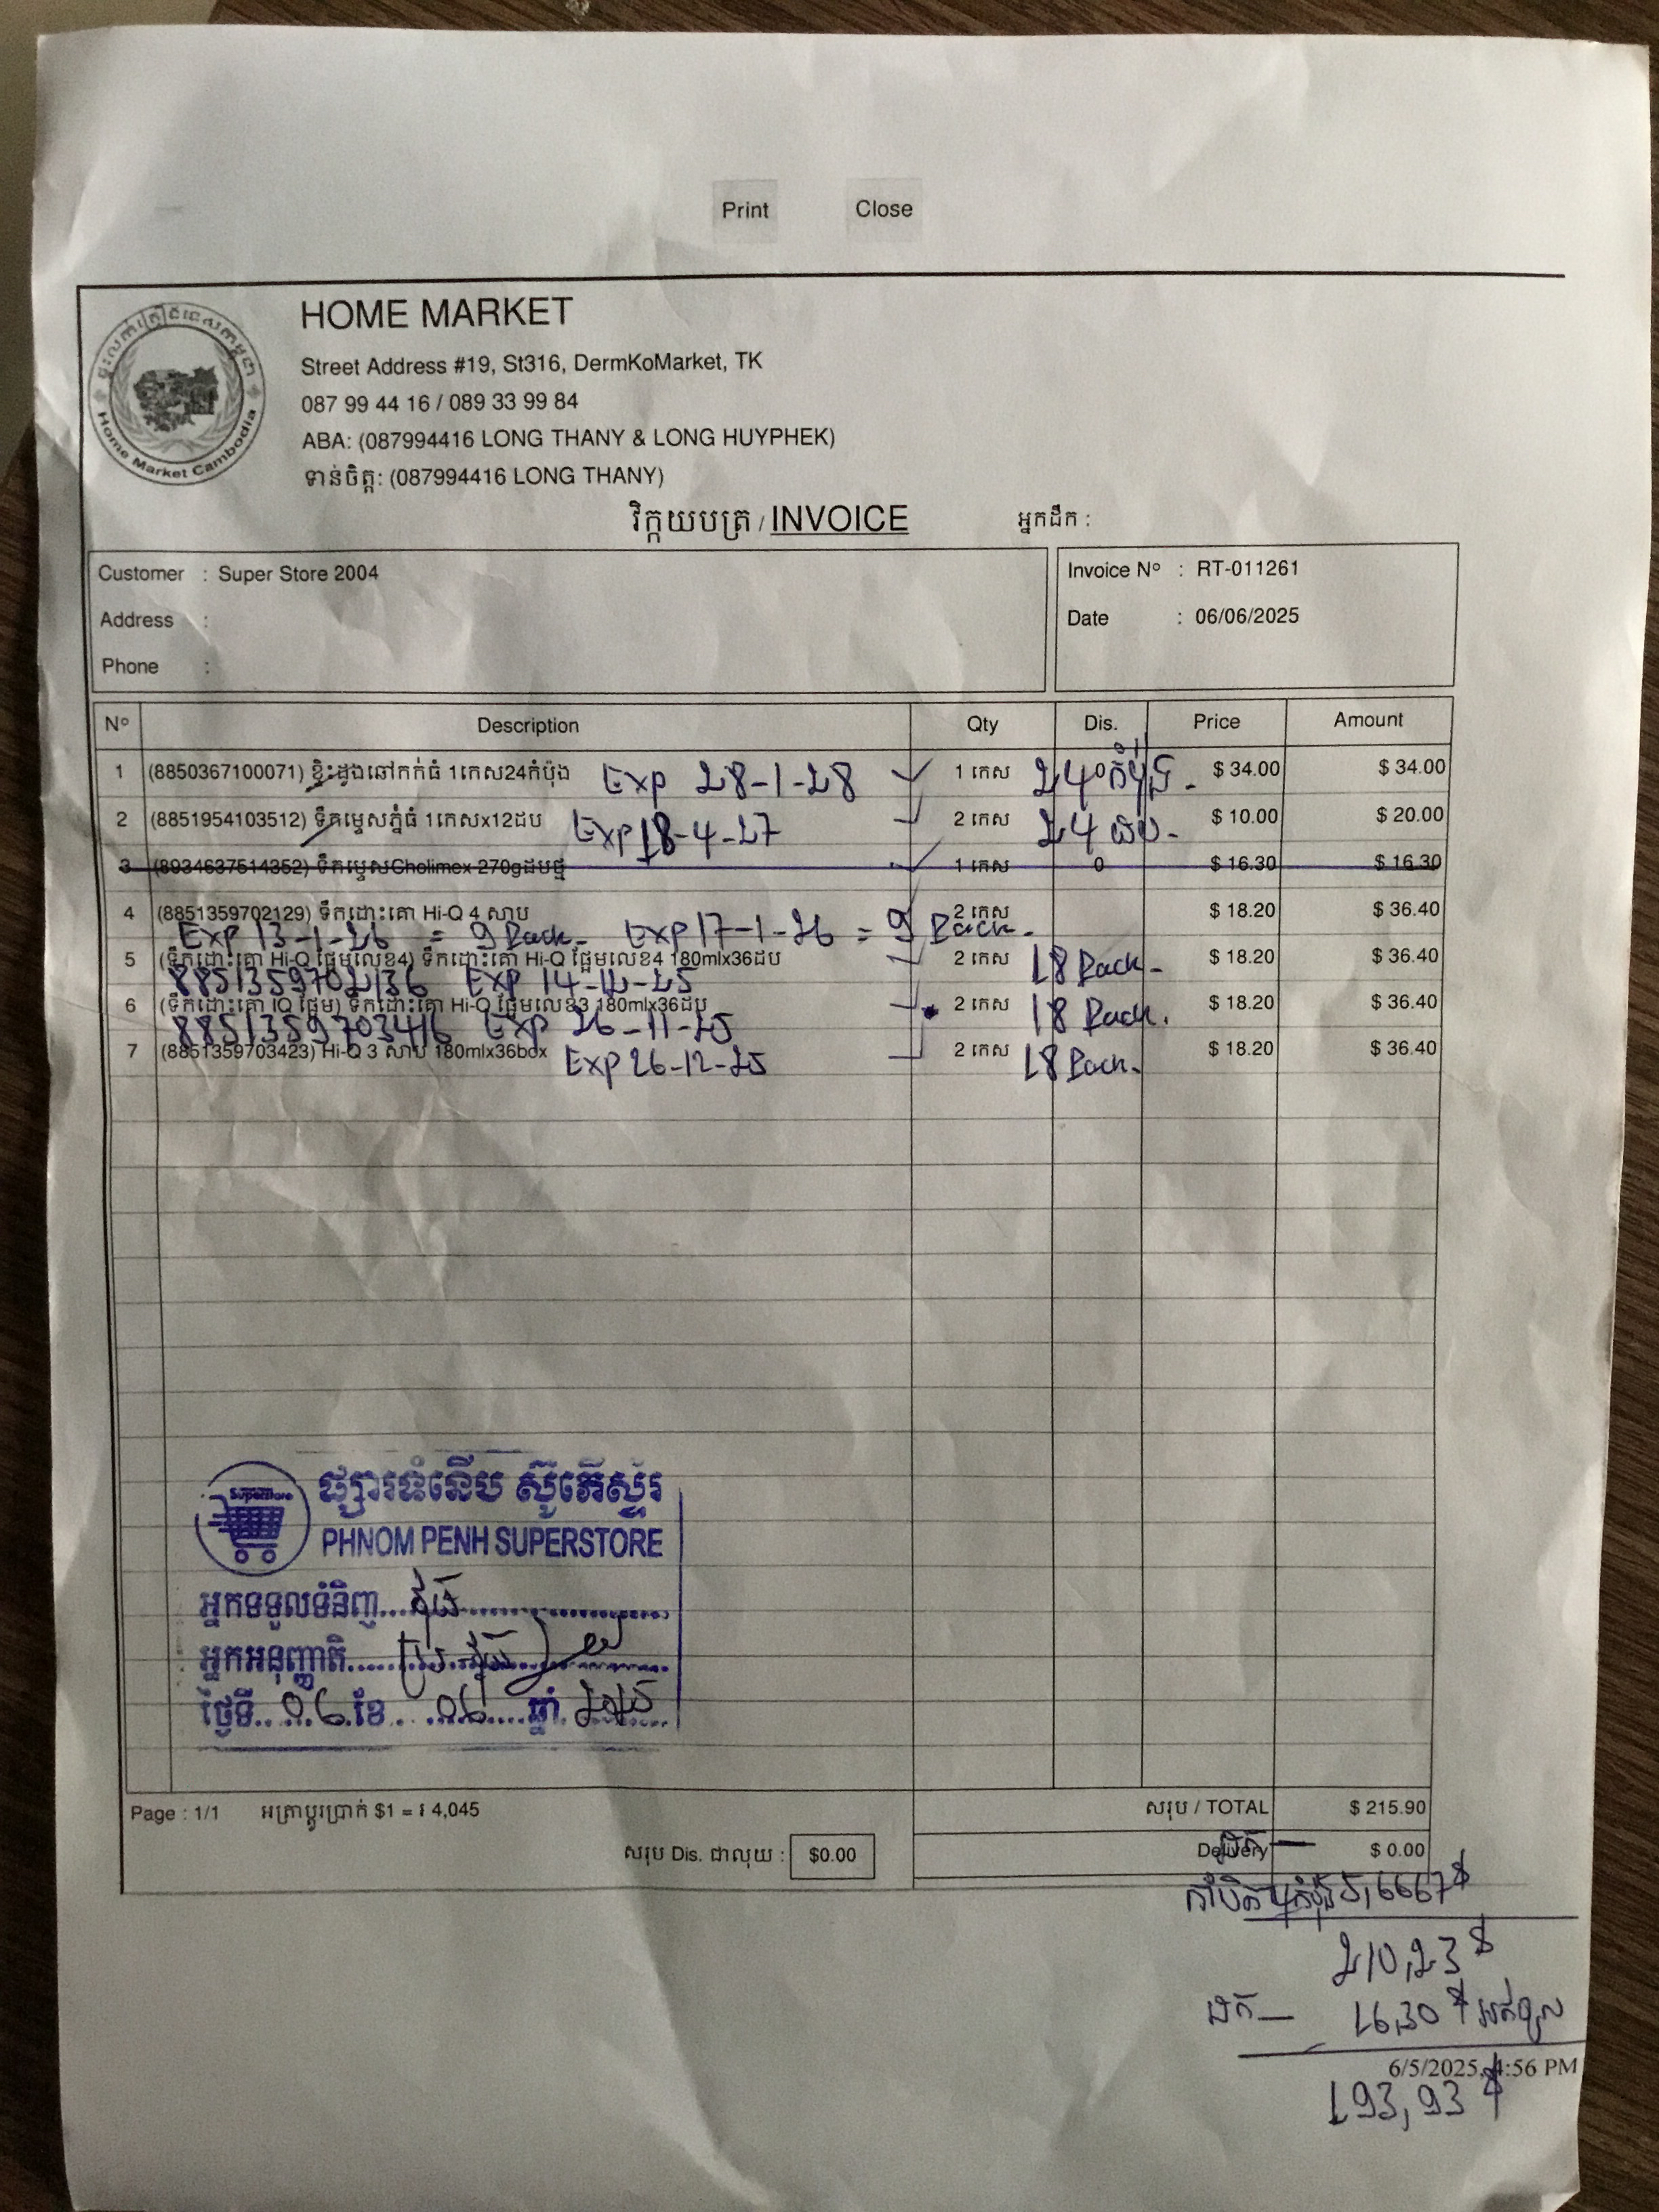 Print Close
Home Market Cambodia
HOME MARKET
Street Address #19, St316, DermKoMarket, TK
087 99 44 16 / 089 33 99 84
ABA: (087994416 LONG THANY & LONG HUYPHEK)
ទាន់ចិត្ត: (087994416 LONG THANY)
វិក្កយបត្រ / INVOICE អ្នកដឹក :
Customer : Super Store 2004 Invoice Nº : RT-011261
Address : Date : 06/06/2025
Phone :
Nº Description Qty Dis. Price Amount
1 (8850367100071) ខ្ទិះដូងឆៅកក់ធំ 1កេស24កំប៉ុង Exp 28-1-28 1 កេស 24 កំប៉ុង - $ 34.00 $ 34.00
2 (8851954103512) ទឹកម្ទេសភ្នំធំ 1កេសx12ដប Exp 18-4-27 2 កេស 24 ដប - $ 10.00 $ 20.00
3 (8934637514352) ទឹកម្ទេសCholimex 270gដបថ្មី 1 កេស 0 $ 16.30 $ 16.30
4 (8851359702129) ទឹកដោះគោ Hi-Q 4 សាប 2 កេស $ 18.20 $ 36.40
Exp 13-1-26 = 9 Pack - Exp 17-1-26 = 9 Pack -
5 (ទឹកដោះគោ Hi-Q ផ្អែមលេខ4) ទឹកដោះគោ Hi-Q ផ្អែមលេខ4 180mlx36ដប 2 កេស 18 Pack - $ 18.20 $ 36.40
8851359702136 Exp 14-12-25
6 (ទឹកដោះគោ IQ ផ្អែម) ទឹកដោះគោ Hi-Q ផ្អែមលេខ3 180mlx36ដប 2 កេស 18 Pack . $ 18.20 $ 36.40
8851359703416 Exp 26-11-25
7 (8851359703423) Hi-Q 3 សាប 180mlx36box Exp 26-12-25 2 កេស 18 Pack - $ 18.20 $ 36.40
Superstore
ផ្សារទំនើប ស៊ូភើស្ទ័រ
PHNOM PENH SUPERSTORE
អ្នកទទួលទំនិញ
អ្នកអនុញ្ញាតិ
ថ្ងៃទី 06 ខែ 06 ឆ្នាំ 2025
Page : 1/1 អត្រាប្ដូរប្រាក់ $1 = ៛ 4,045 សរុប / TOTAL $ 215.90
សរុប Dis. ជាលុយ : $0.00 Delivery $ 0.00
5,6667$
210,23$
ដក - 16,30$
6/5/2025, 4:56 PM
193,93$